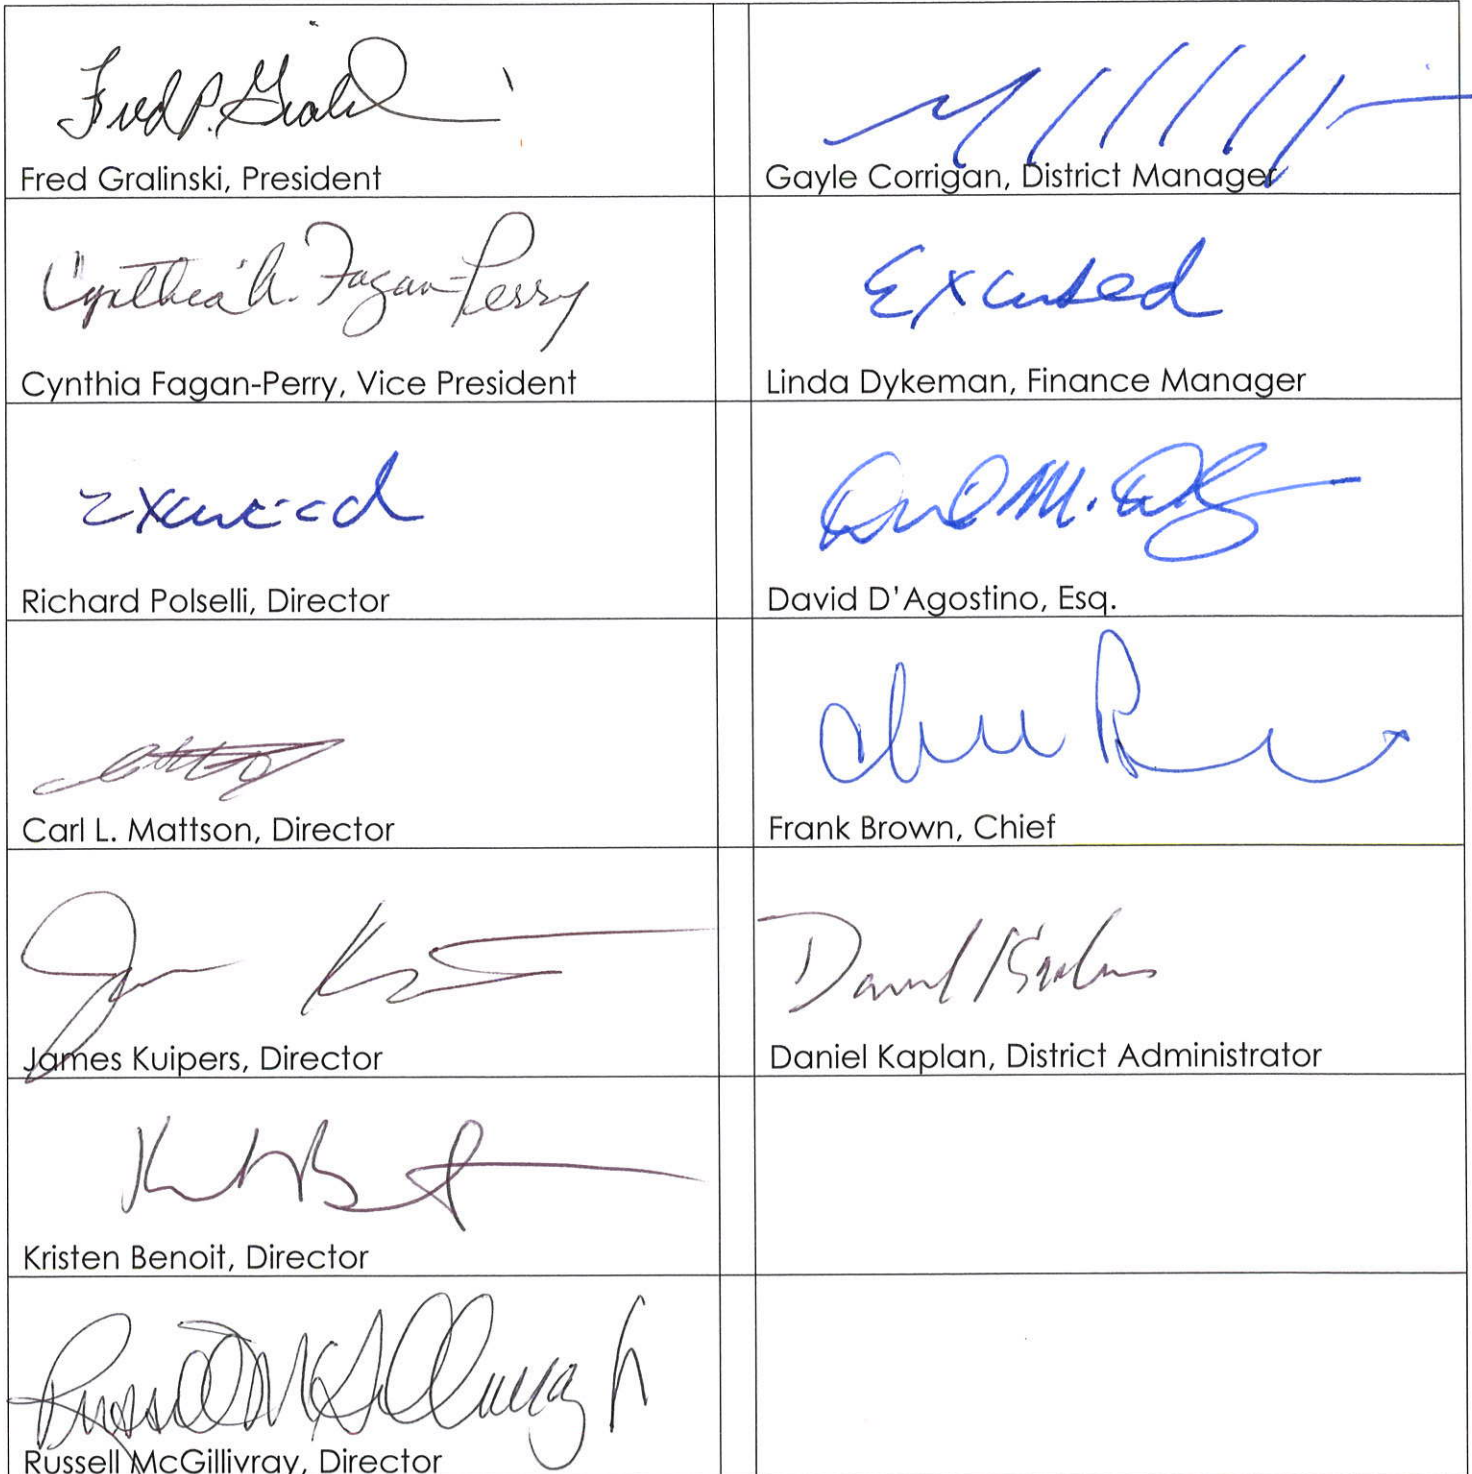 Fred P. Gralinski
Fred Gralinski, President
Gayle Corrigan, District Manager
Cynthia A. Fagan-Perry
Cynthia Fagan-Perry, Vice President
Excused
Linda Dykeman, Finance Manager
Excused
Richard Polselli, Director
David D'Agostino, Esq.
Carl L. Mattson, Director
Frank Brown, Chief
James Kuipers, Director
Daniel Kaplan
Daniel Kaplan, District Administrator
Kristen Benoit, Director
Russell McGillivray Jr
Russell McGillivray, Director